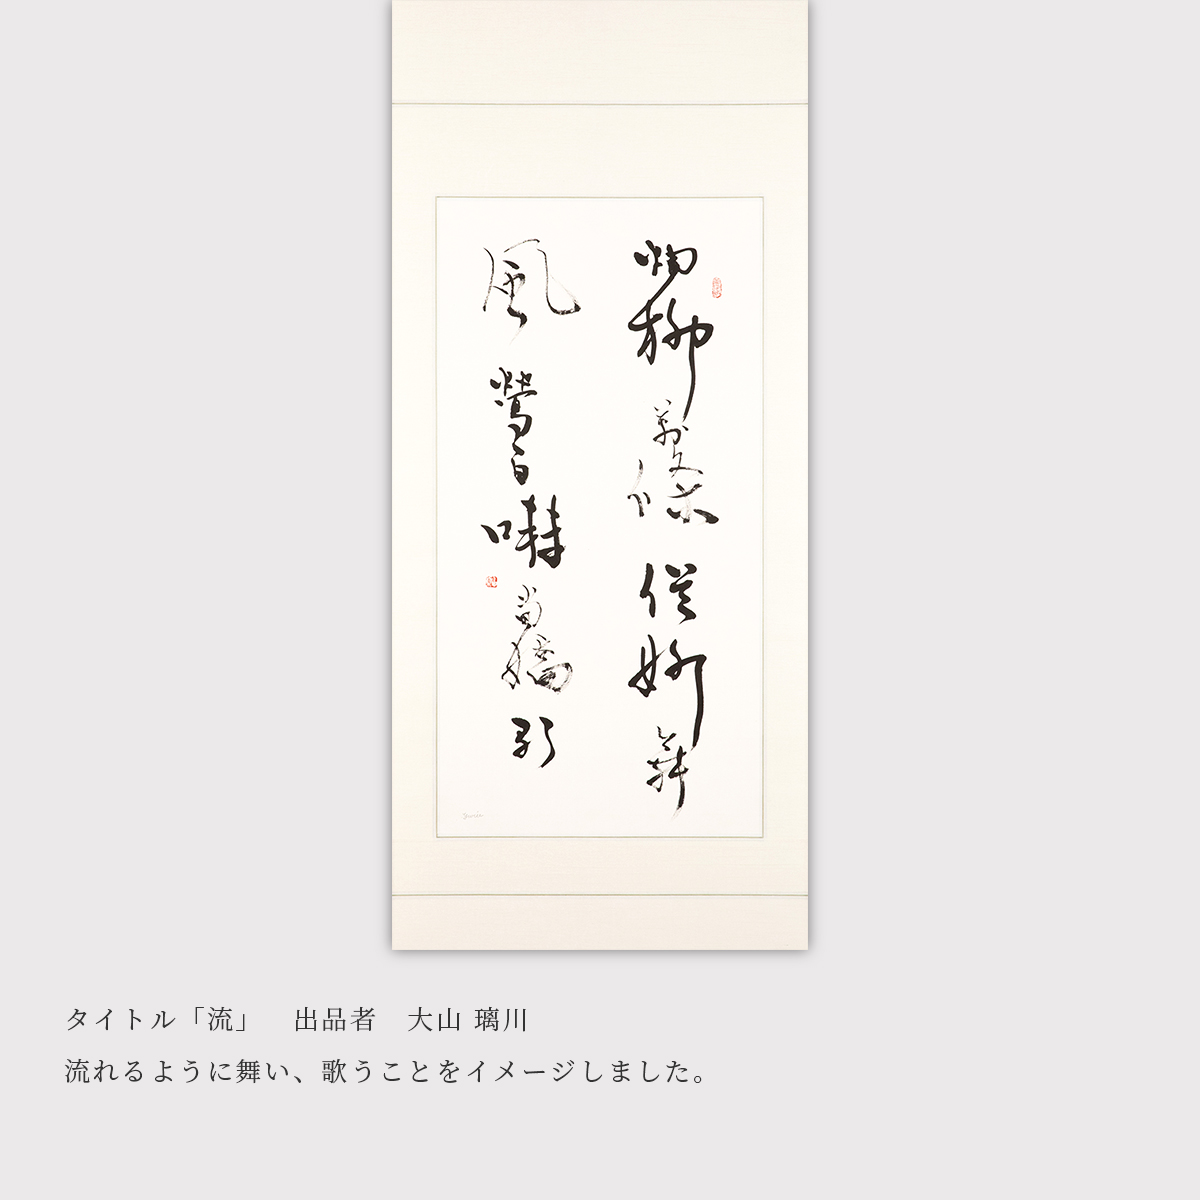 烟柳萬條妙舞
風鶯百囀當嬌歌
タイトル「流」　出品者　大山 璃川
流れるように舞い、歌うことをイメージしました。